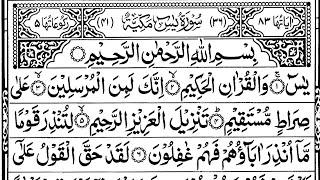 اٰیَاتُهَا ٨٣ (٣٦) سُوْرَةُ يٰسٓ مَكِّيَّةٌ (٤١) رُكُوْعَاتُهَا ٥
بِسْمِ اللّٰهِ الرَّحْمٰنِ الرَّحِيْمِ
يٰسٓ ۝ وَالْقُرْاٰنِ الْحَكِيْمِ ۝ اِنَّكَ لَمِنَ الْمُرْسَلِيْنَ ۝ عَلٰى
صِرَاطٍ مُّسْتَقِيْمٍ ۝ تَنْزِيْلَ الْعَزِيْزِ الرَّحِيْمِ ۝ لِتُنْذِرَ قَوْمًا
مَّاۤ اُنْذِرَ اٰبَآؤُهُمْ فَهُمْ غٰفِلُوْنَ ۝ لَقَدْ حَقَّ الْقَوْلُ عَلٰۤى